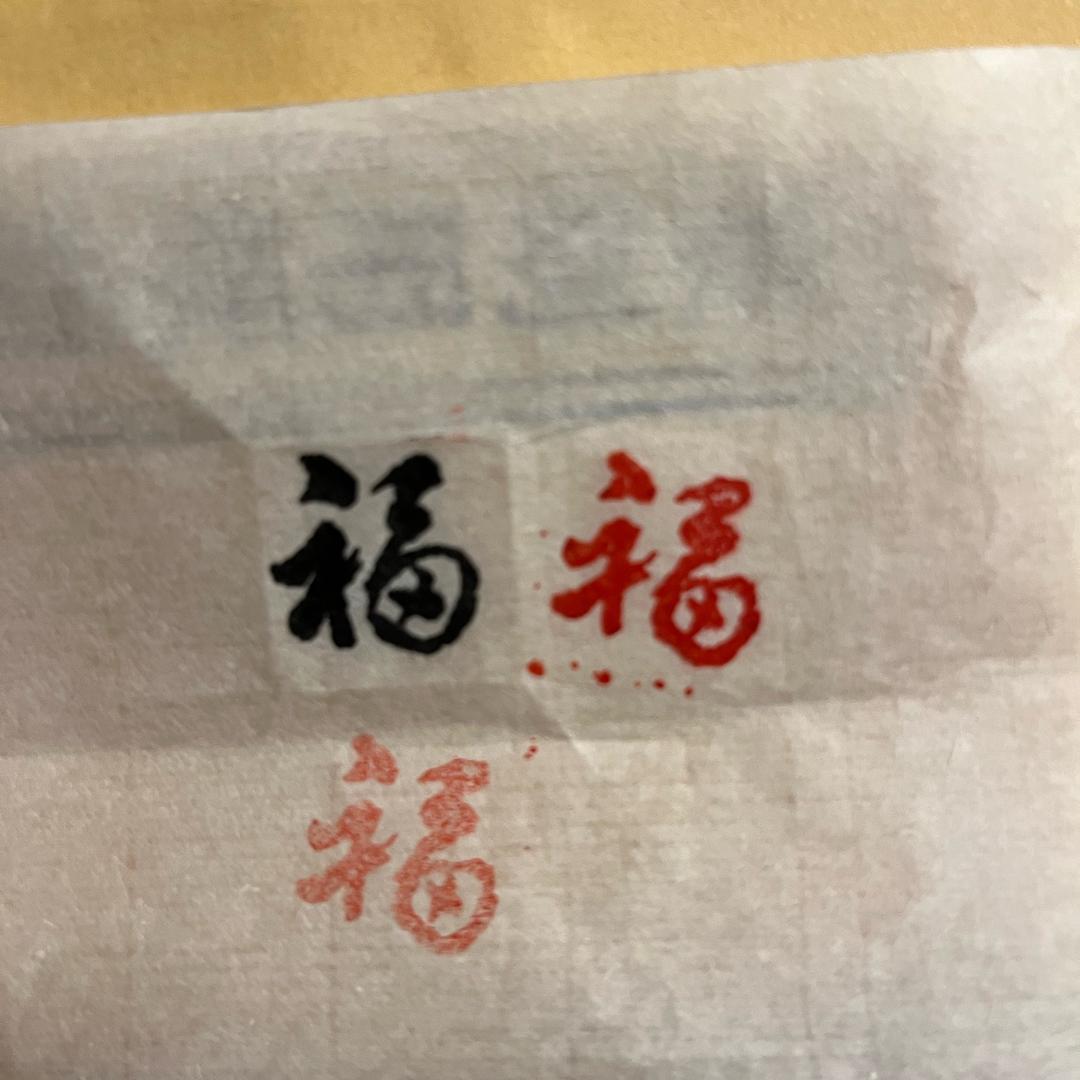 福 福
福